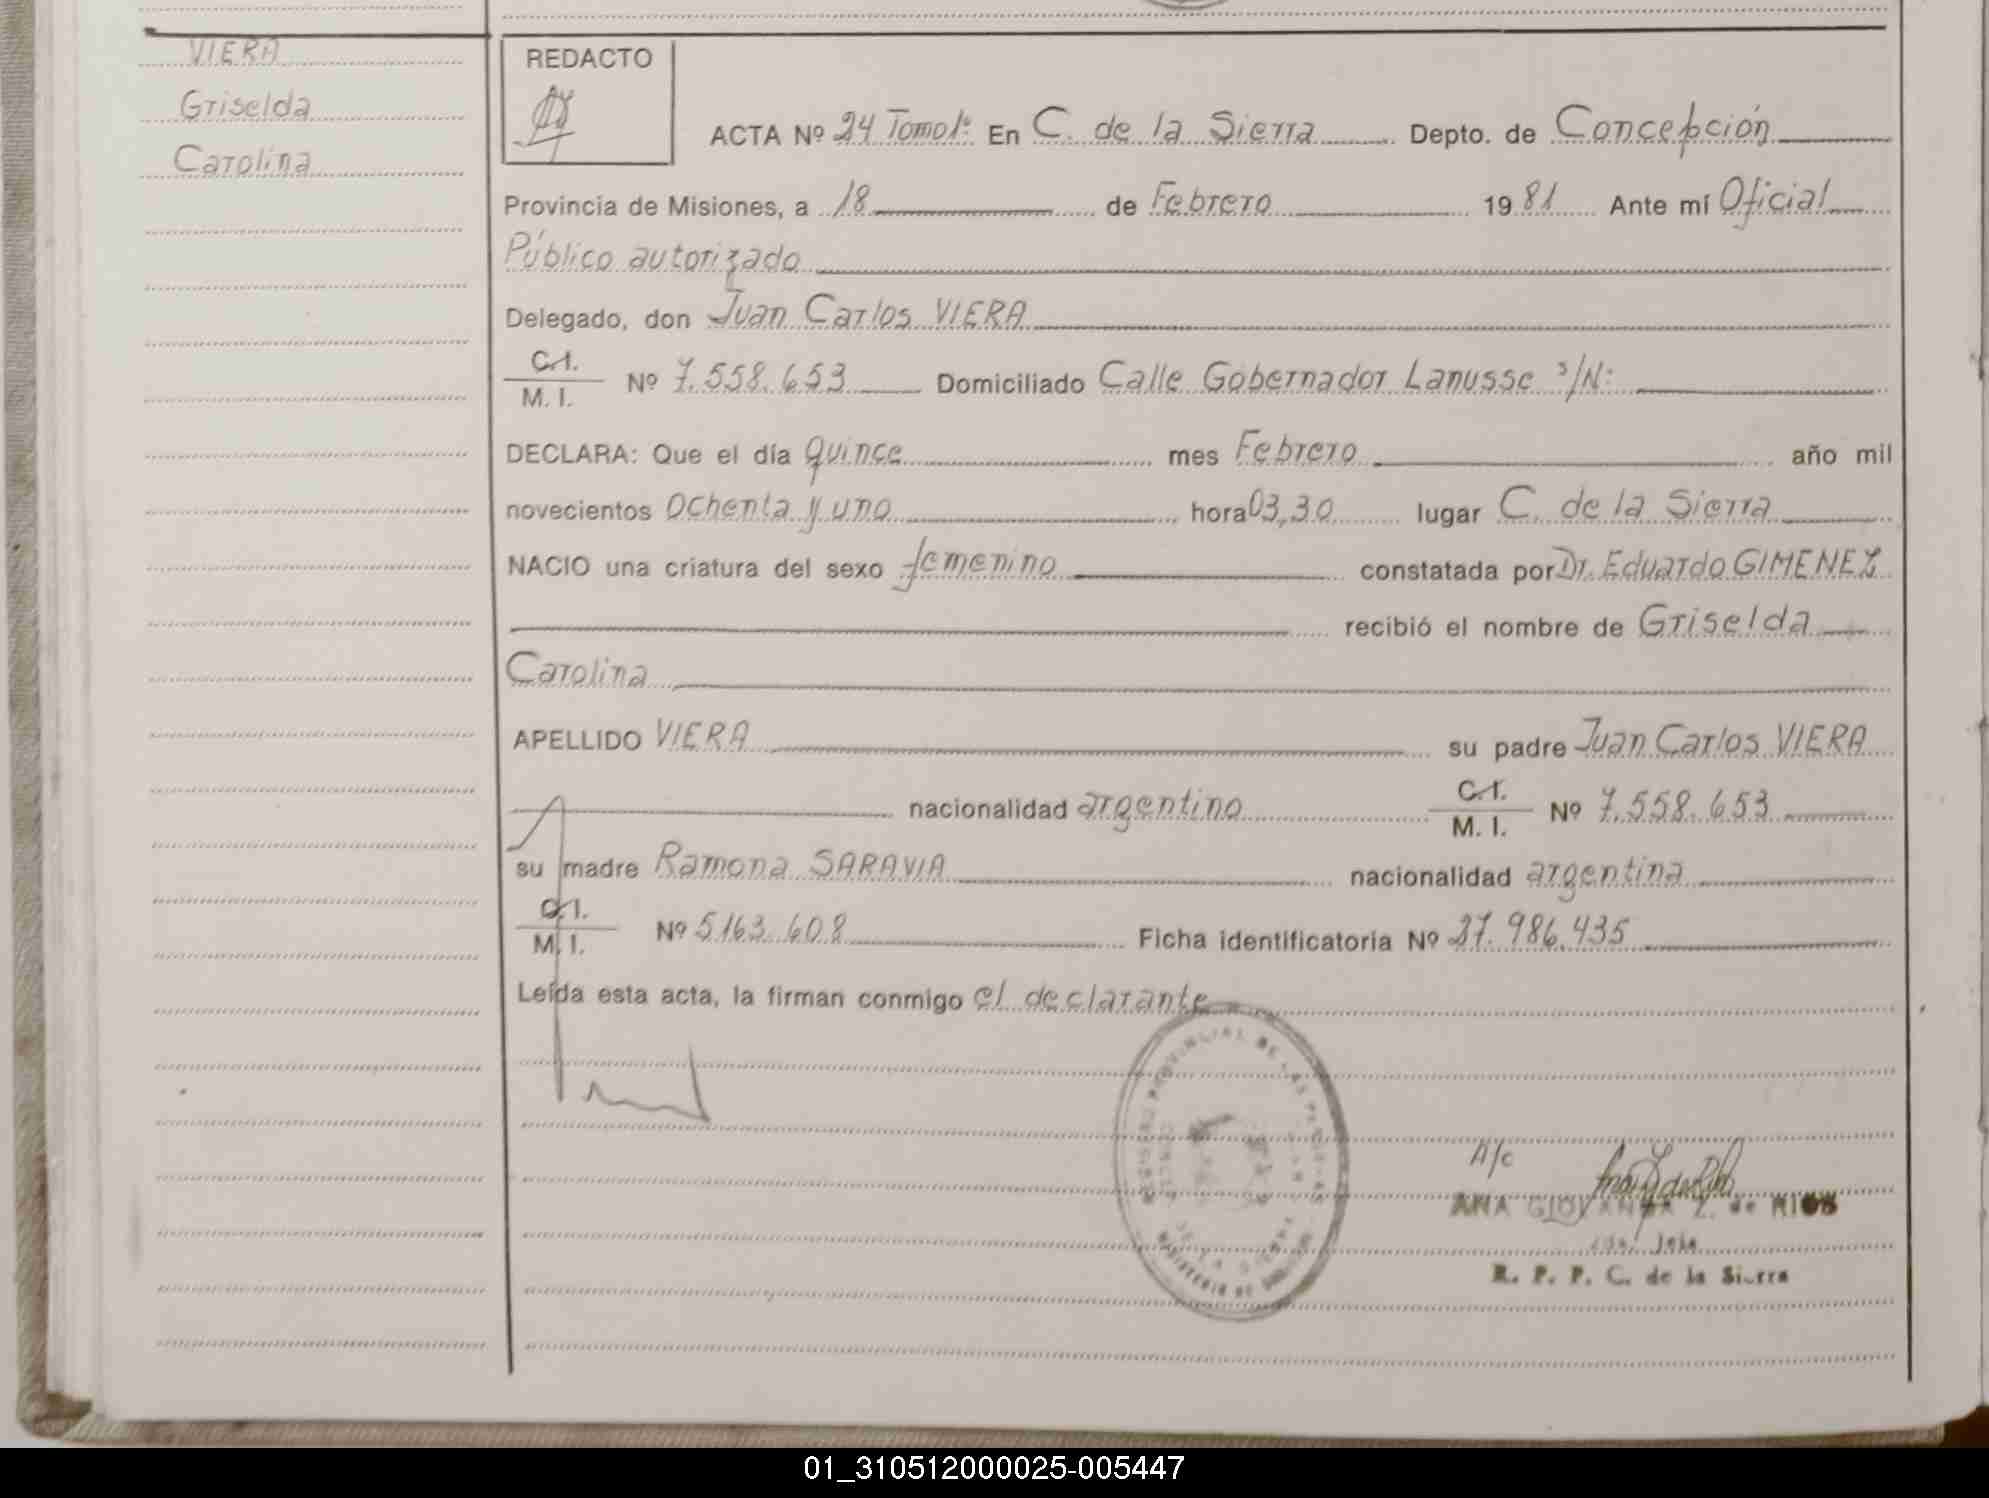 VIERA
Griselda
Carolina
REDACTO
ACTA Nº 24 Tomo 1º En C. de la Sierra Depto. de Concepción
Provincia de Misiones, a 18 de Febrero 1981 Ante mí Oficial
Público autorizado
Delegado, don Juan Carlos VIERA
C.I.
M. I. Nº 7.558.653 Domiciliado Calle Gobernador Lanusse s/N:
DECLARA: Que el día quince mes Febrero año mil
novecientos Ochenta y uno hora 03,30 lugar C. de la Sierra
NACIO una criatura del sexo femenino constatada por Dr. Eduardo GIMENEZ
recibió el nombre de Griselda
Carolina
APELLIDO VIERA su padre Juan Carlos VIERA
nacionalidad argentino C.I. M. I. Nº 7.558.653
su madre Ramona SARAVIA nacionalidad argentina
C.I.
M. I. Nº 5.163.608 Ficha identificatoria Nº 27.986.435
Leída esta acta, la firman conmigo el declarante
PROVINCIAL DE LAS PERSONAS
DE LA SIERRA
MINISTERIO DE
A/c
ANA GIOVANNA Z. de RIOS
Jefe
R. P. P. C. de la Sierra
01_310512000025-005447